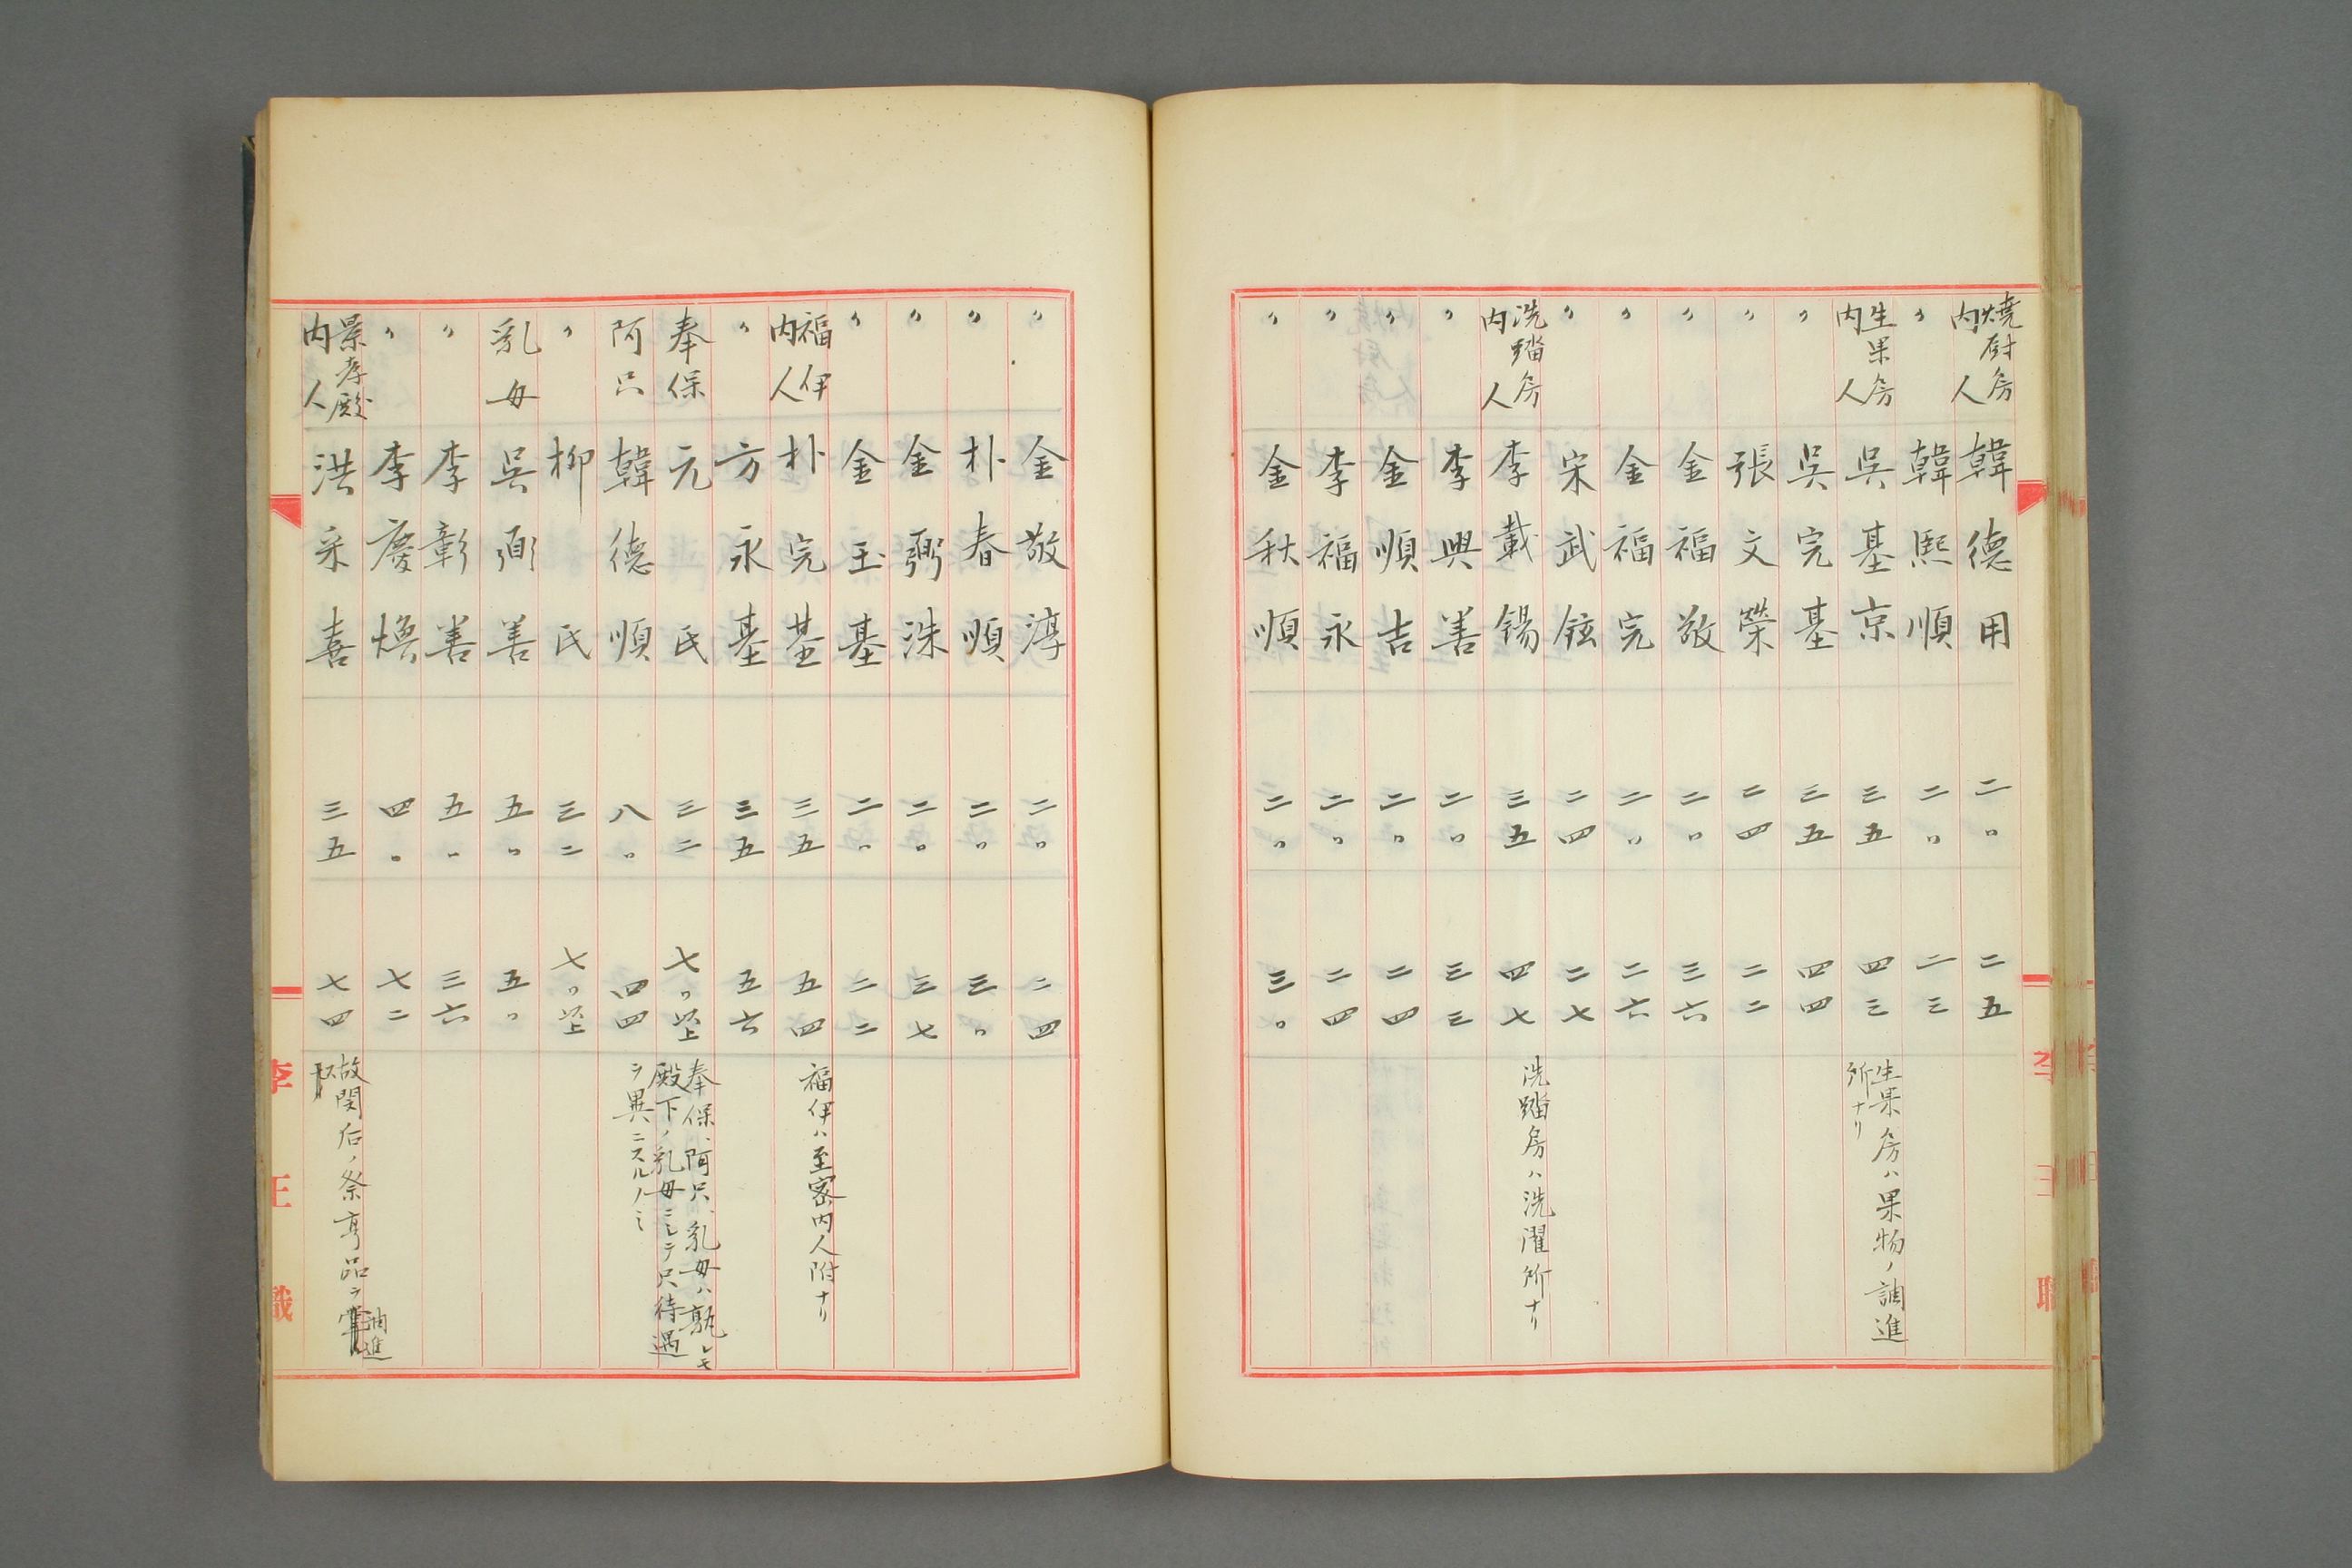 燒厨房内人 韓德用 二〇 二五
〃 韓熙順 二〇 二三
生果房内人 吳基京 三五 四三 生果房ハ果物ノ調進所ナリ
〃 吳完基 三五 四四
〃 張文榮 二四 二二
〃 金福敬 二〇 三六
〃 金福完 二〇 二六
〃 宋武鉉 二四 二七
洗踏房内人 李載錫 三五 四七 洗踏房ハ洗濯所ナリ
〃 李興善 二〇 三三
〃 金順吉 二〇 二四
〃 李福永 二〇 二四
〃 金秋順 二〇 三〇
〃 金敬淳 二〇 二四
〃 朴春順 二〇 三〇
〃 金弼洙 二〇 三七
〃 金玉基 二〇 二二
福伊内人 朴完基 三五 五四 福伊ハ至密内人附ナリ
〃 方永基 三五 五六
奉保 元氏 三二 七〇以上 奉保、阿只、乳母ハ孰レモ殿下ノ乳母ニシテ只待遇ヲ異ニスルノミ
阿只 韓德順 八〇 四四
〃 柳氏 三二 七〇以上
乳母 吳鄖善 五〇 五〇
〃 李彰善 五〇 三六
〃 李慶煥 四〇 七二
景孝殿内人 洪采喜 三五 七四 故閔后ノ祭享品ヲ調進ス
李王職